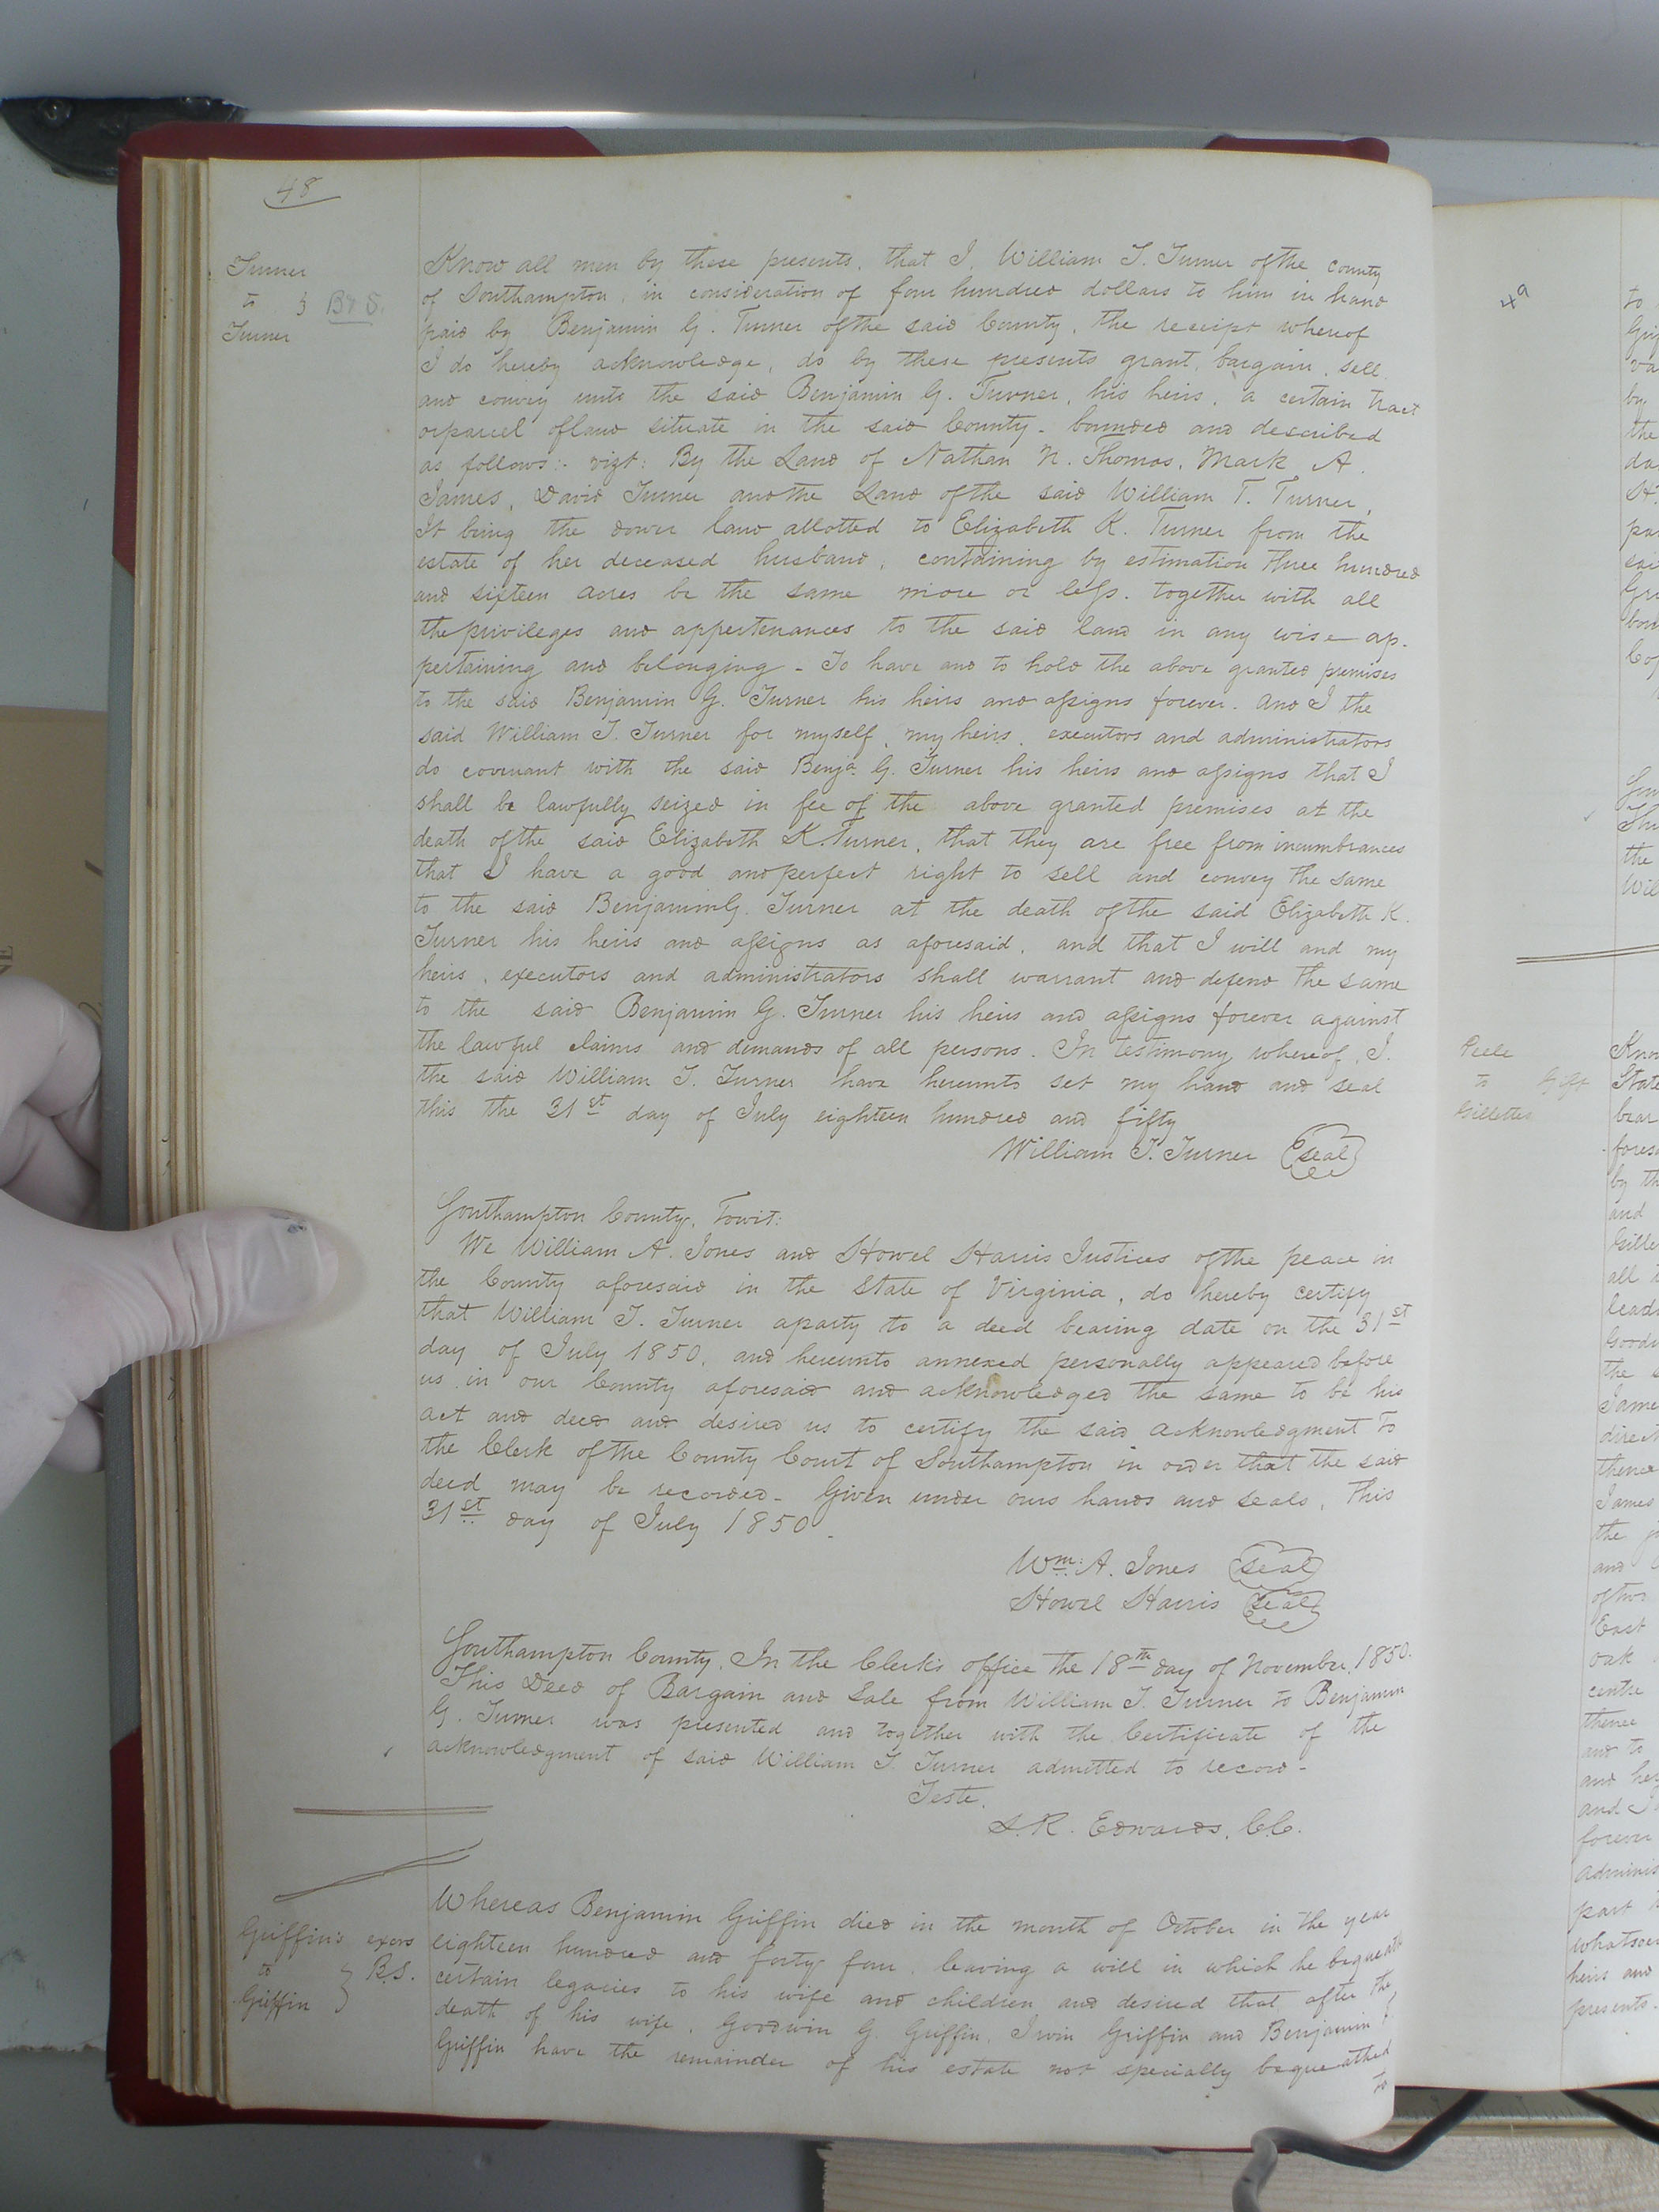 48
Turner
to } B & S.
Turner
Know all men by these presents, that I, William T. Turner of the County
of Southampton, in consideration of four hundred dollars to him in hand
paid by Benjamin G. Turner of the said County, the receipt whereof
I do hereby acknowledge, do by these presents grant, bargain, sell
and convey unto the said Benjamin G. Turner, his heirs, a certain tract
or parcel of land situate in the said County - bounded and described
as follows:- vizt: By the Land of Nathan N. Thomas, Mark A.
James, David Turner and the Land of the said William T. Turner,
It being the dower land allotted to Elizabeth K. Turner from the
estate of her deceased husband, containing by estimation three hundred
and sixteen acres be the same more or less. together with all
the privileges and appertenances to the said land in any wise ap-
pertaining and belonging - To have and to hold the above granted premises
to the said Benjamin G. Turner his heirs and assigns forever. And I the
said William T. Turner for myself, my heirs, executors and administrators
do covenant with the said Benja. G. Turner his heirs and assigns that I
shall be lawfully seized in fee of the above granted premises at the
death of the said Elizabeth K. Turner, that they are free from incumbrances
that I have a good and perfect right to sell and convey the same
to the said Benjamin G. Turner at the death of the said Elizabeth K.
Turner his heirs and assigns as aforesaid, and that I will and my
heirs, executors and administrators shall warrant and defend the same
to the said Benjamin G. Turner his heirs and assigns forever against
the lawful claims and demands of all persons. In testimony whereof, I.
the said William T. Turner have hereunto set my hand and seal
this the 31st day of July eighteen hundred and fifty
William T. Turner (seal)
Southampton County, Towit:
We William A. Jones and Howel Harris Justices of the peace in
the County aforesaid in the State of Virginia, do hereby certify
that William T. Turner a party to a deed bearing date on the 31st
day of July 1850, and hereunto annexed personally appeared before
us in our County aforesaid and acknowledged the same to be his
act and deed and desired us to certify the said acknowledgment to
the Clerk of the County Court of Southampton in order that the said
deed may be recorded - Given under ours hands and seals, this
31st day of July 1850 -
Wm. A. Jones (seal)
Howel Harris (seal)
Southampton County, In the Clerk's office the 18th day of November, 1850.
This Deed of Bargain and Sale from William T. Turner to Benjamin
G. Turner was presented and together with the Certificate of the
acknowledgment of said William T. Turner admitted to record -
Teste,
L. R. Edwards, C.C.
Griffin's exors
to } B.S.
Griffin
Whereas Benjamin Griffin died in the month of October in the year
eighteen hundred and forty four, leaving a will in which he bequeath
certain legacies to his wife and children, and desired that after the
death of his wife, Goodwin G. Griffin, Irwin Griffin and Benjamin
Griffin have the remainder of his estate not specially bequeathed
to
49
Peele
to Gift
Gillette